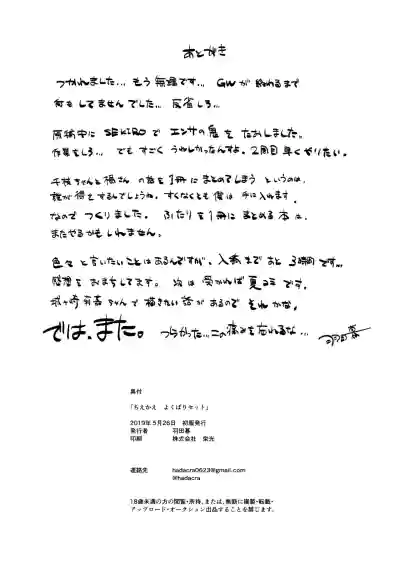 あとがき
つかれました... もう無理です... GWが終わるまで
何もしてませんでした... 反省しろ...
原稿中に SEKIROで エンサの鬼を たおしました。
作業をしろ... でも すごく うれしかったんすよ。2周目 早くやりたい。
千枝ちゃんと楓さん の話を1冊に まとめてしまう というのは、
誰が得をするんでしょうね。すくなくとも僕は 手に入れます。
なので つくりました。 ふたりを1冊に まとめる本は、
またやるかも しれません。
色々と言いたいことはあるんですが、入稿まで あと 3時間です...
感想を おまちしてます。 次は 受かれば夏コミです。
ちゃんで描きたい話があるので それかな。
では、また。 つらかった...この痛みを忘れるな... 羽田
奥付
「ちえかえ よくばりセット」
2019年5月26日 初版発行
発行者 羽田幕
印刷 株式会社 栄光
連絡先 hadacra0623@gmail.com
@hadacra
18歳未満の方の閲覧・所持、または、無断に複製・転載・
アップロード・オークション出品することを禁じます。